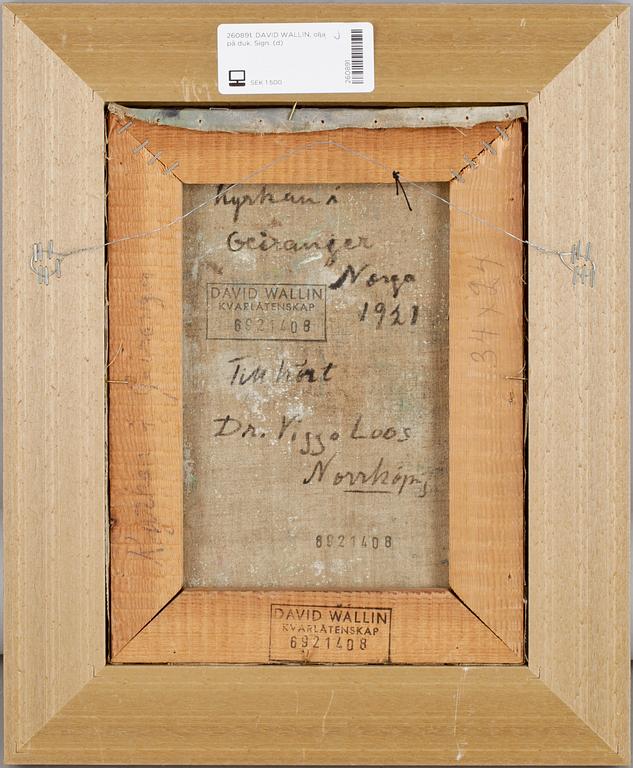 260891. DAVID WALLIN, olja
på duk. Sign. (d)
SEK 1 500
260891
Kyrkan i
Geiranger
Norge
1921
DAVID WALLIN
KVARLÅTENSKAP
6921408
Tillhört
Dr. Viggo Loos
Norrköping
8921408
34 x 24
Kyrkan i Geiranger
DAVID WALLIN
KVARLÅTENSKAP
6921408